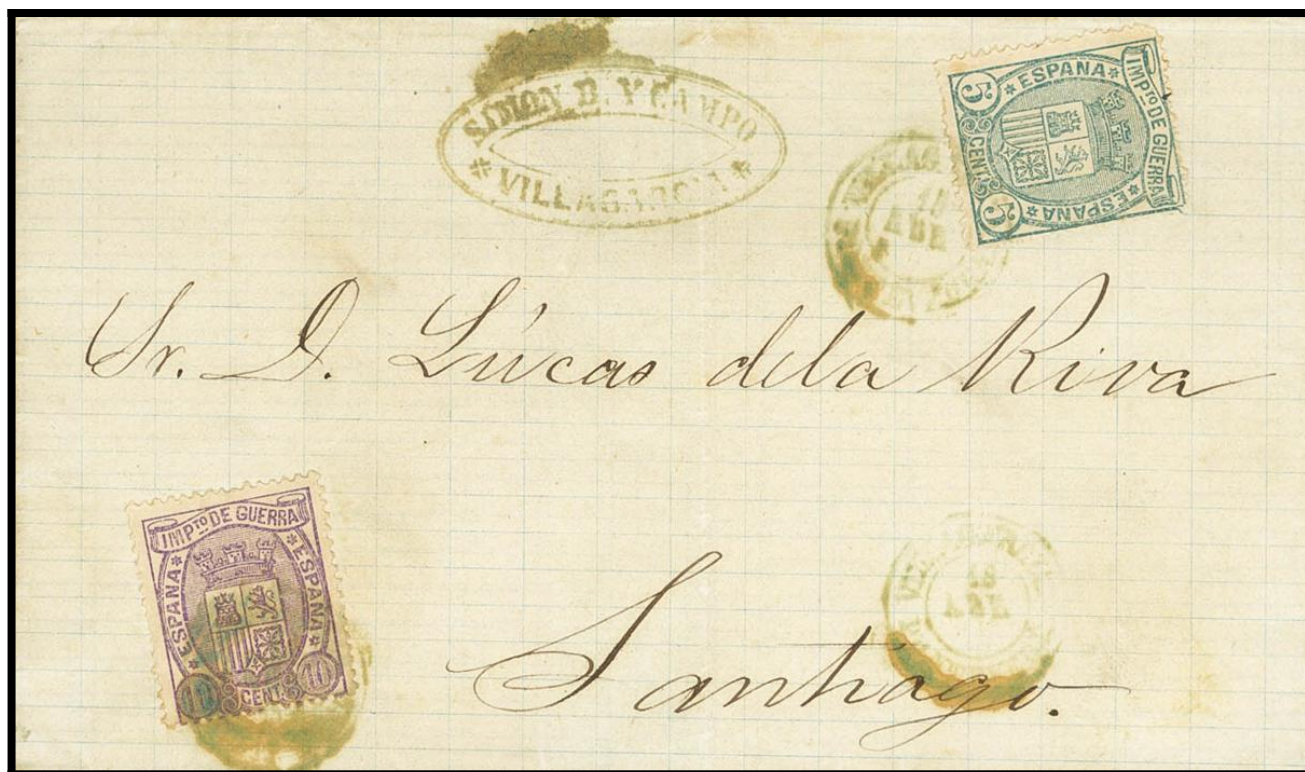 SIMON D. Y CAMPO
* VILLAGARCIA *
*ESPANA*
IMPTO DE GUERRA
*ESPANA*
5 CENT.S 5
ABR
Sr. D. Lúcas dela Riva
IMPTO DE GUERRA
*ESPANA*
*ESPANA*
10 CENT.S 10
ABR
Santiago.